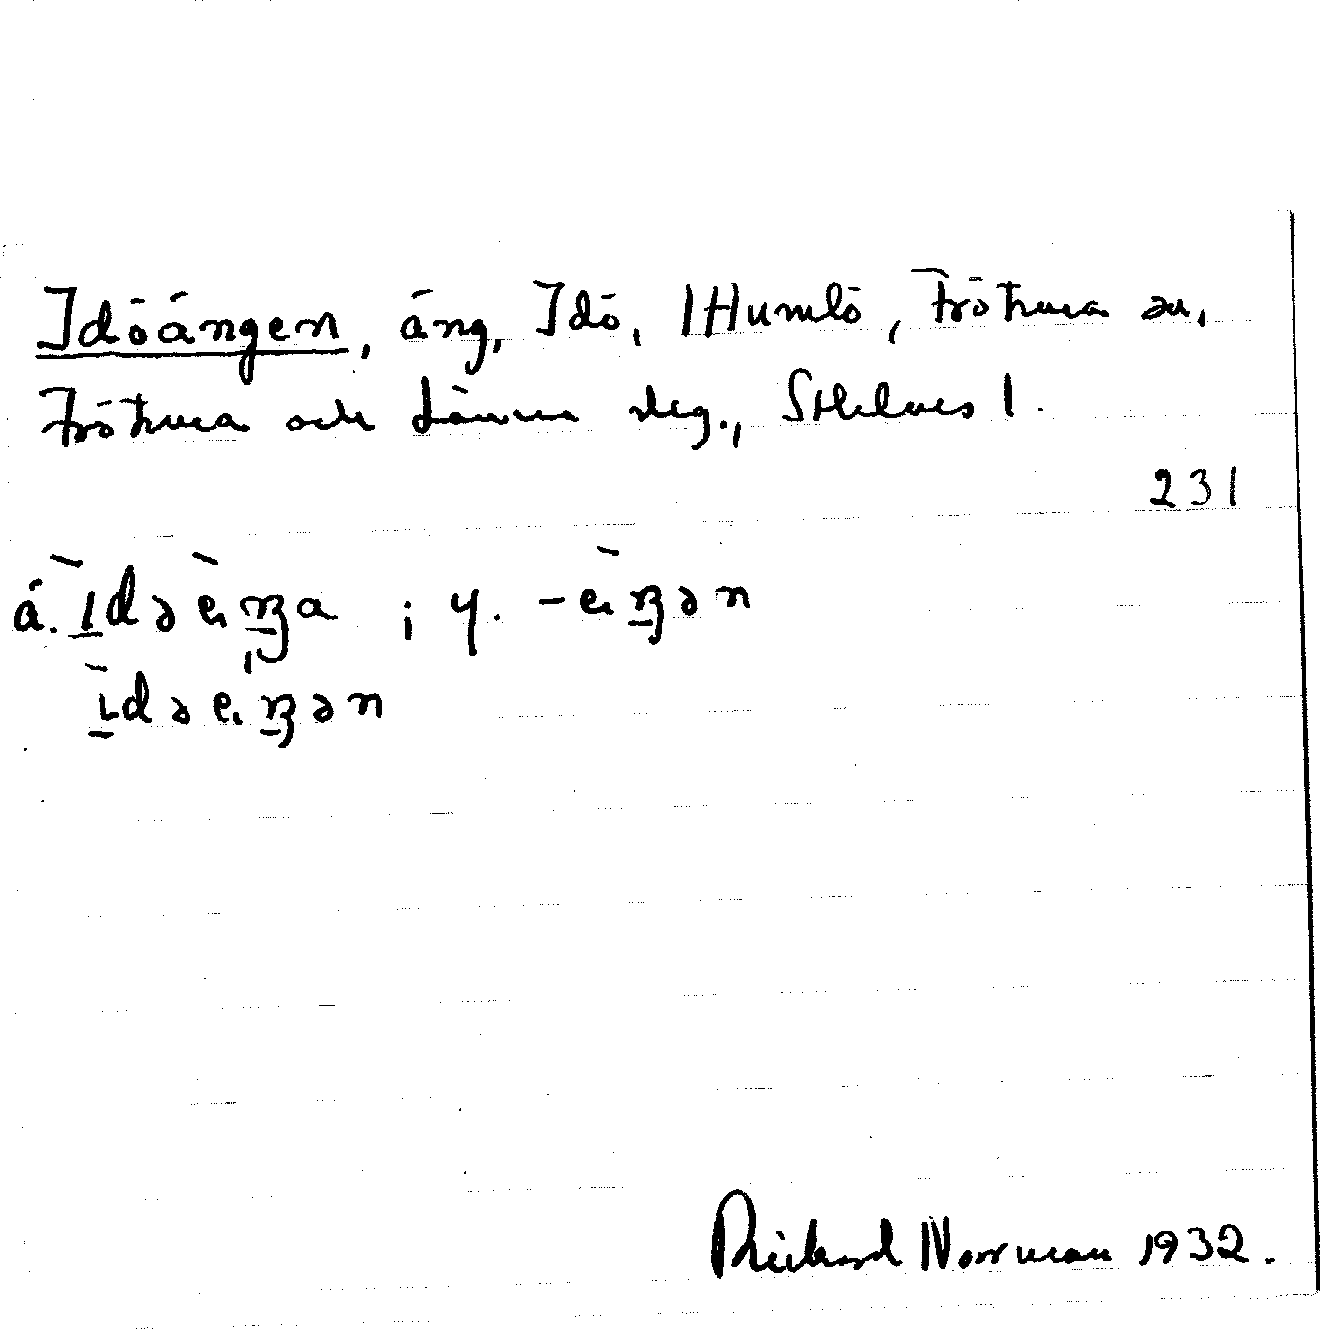 Idöängen, äng, Idö, 1 Humlö, Frötuna sn,
Frötuna och Länna skg., Sthlms l.
231
ä. ìdəèŋa ; y. -èŋən
ìdəeŋən
Rickard Norrman 1932.